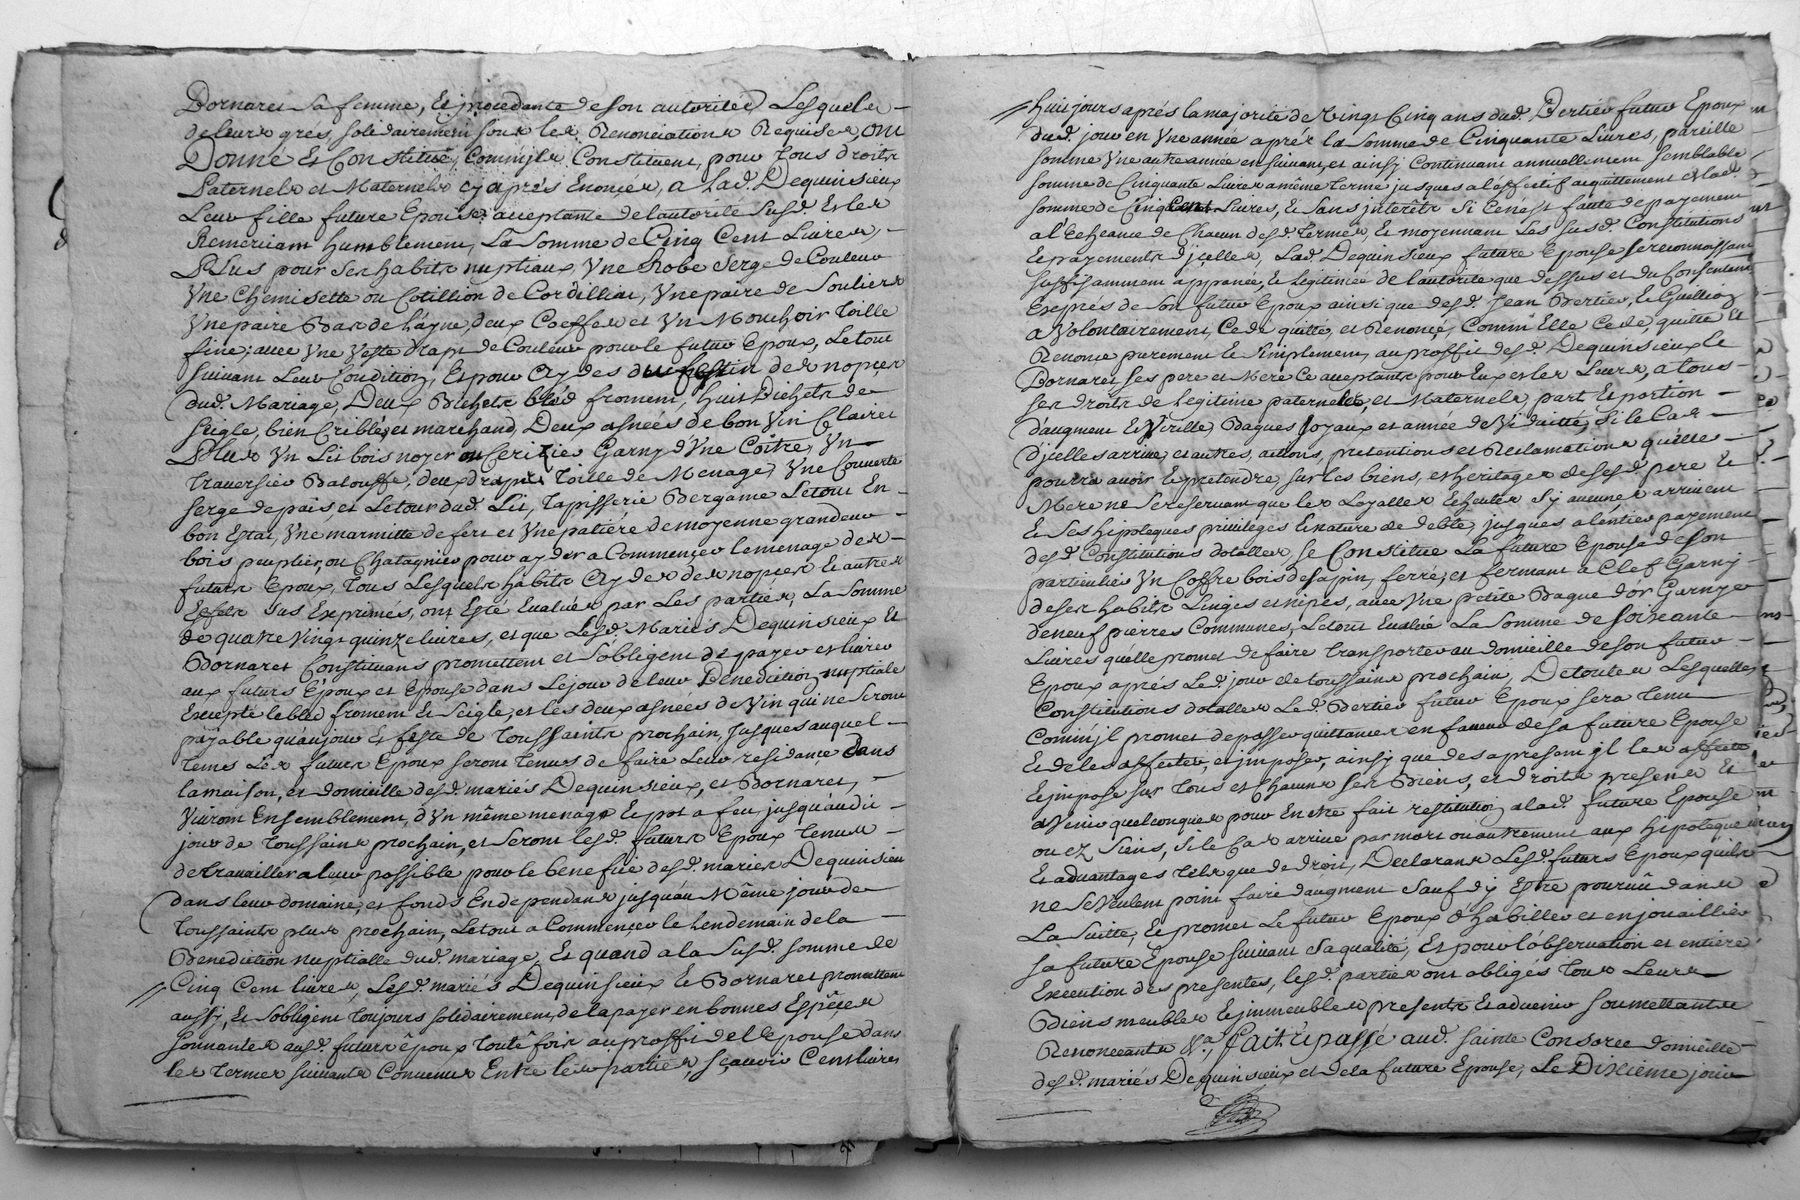 Bornaret sa femme, Et procedante de son autorités, Lesquels
de leurs grés, solidairement sous les Renonciations Requises ont
Donné Et Constitué, Comm'jls Constituent, pour tous droits
Paternels et Maternels cy aprés Enoncés, a Lad. Dequinsieux
Leur fille future Epouse acceptante de l'autorité susd. Et les
Remerciant humblement, La somme de Cinq Cent Livres,
Plus pour ses habits nuptiaux, Vne Robe serge de Couleur
Vne Chemisette ou Cotillion de Cordilliat, Vne paire de souliers
Vne paire Bas de layne, deux Coeffes et Vn Mouchoir toille
fine; avec Vne Veste drap de Couleur pour le futur Epoux, Le tout
suivant Leur Condition, Et pour Aydes du festin des nopces
dud. Mariage, Deux Bichets bléd froment, huit Bichets de
seigle, bien Criblés et marchand, Deux asnées de bon Vin Clairet
Plus Vn Lit bois noyer ou Cerizier Garny d'Vne Coitre, Vn
traversier Balouffe, deux draps toille de Menage, Vne Couverte
serge de pais, et Le tour dud. Lit, tapisserie Bergame Le tout En
bon Estat, Vne marmitte de fert et Vne patiére de moyenne grandeur
bois peuplier, ou Chatagnier pour ayder a Commencer le menage des
futurs Epoux, tous Lesquels habits Aydes des nopces Et autres
Effets sus Exprimés, ont Esté Evalués par Les parties, La somme
de quatre Vingt quinze livres, et que Lesd. Mariés Dequinsieux Et
Bornaret Constituans promettent et s'obligent de payer et livrer
aux futurs Epoux et Epouse dans Le jour de leur Benediction nuptiale
Excepté le bled froment Et seigle, et les deux asnées de Vin qui ne seront
payable qu'au jour Et feste de Toussaints prochain, Jusques auquel
tems Les futurs Epoux seront tenus de faire Leur residance Dans
la maison, et domicille desd. mariés Dequinsieux, et Bornaret,
Vivront Ensemblement, d'Vn même menage Et pot a feu jusqu'audit
jour de Toussaint prochain, et seront lesd. futurs Epoux tenus
de travailler a leur possible pour le benefice desd. mariés Dequinsieu
dans leur domaine, et fonds En dependans jusqu'au Même jour de
Toussaints plus prochain, Le tout a Commencer le Lendemain de la
Benediction nuptialle dud. mariage, Et quand a la susd. somme de
Cinq Cent livres, Lesd. mariés Dequinsieux Et Bornaret promettent
aussy, Et s'obligent toujours solidairement, de la payer en bonnes Espêces
sonnantes ausd. futurs êpoux toute fois au proffit de l'Epouse dans
les termes suivants Convenus Entre les parties, sçavoir Cent livres
huit jours aprés la majorité de Vingt Cinq ans dud. Bertier futur Epoux
dud. jour en Vne année aprés la somme de Cinquante Livres, pareille
somme Vne autre année en suivant, et ainsy Continuant annuellement semblable
somme de Cinquante Livres a même terme jusques a l'effectif acquittement de lad.
somme de Cinq Cent Livres, Et sans jnterêts si Ce n'est faute de payement
a l'Echeance de Chacun desd. termes, Et moyennant Les susd. Constitutions
Et payements d'jcelles, Lad. Dequinsieux future Epouse se reconnoissant
suffisamment appanée, Et Legitimée de l'autorité que dessus et du Consentement
Exprés de son futur Epoux ainsi que desd. Jean Bertier, Et Guillion
a Volontairement, Cede quitté, et Renoncé, Comm' Elle Cede, quitte Et
Renonce purement Et simplement, au proffit desd. Dequinsieux Et
Bornaret ses pere et Mere Ce acceptants pour Eux et les Leurs, a tous
ses droits de Legitime paternelle, et Maternels, part Et portion
d'augment Et Virille, Bagues Joyaux et année de Viduitté, si le Cas
d'jcelles arrive, et autres, actions, pretentions et Reclamations qu'elle
pourra avoir Et pretendre sur les biens, et heritages de sesd. pere Et
Mere ne se reservant que les Loyalles Echeutes s'y aucunes arrivent
Et ses hipoteques privileges Et nature de debte, jusques a l'entier payement
desd. Constitutions dotalles, se Constitue La future Epouse de son
particulier Vn Coffre bois de sapin, ferré, et fermant a Clef Garny
de ses habits Linges et nipes, avec Vne petite Bague d'or Garnye
de neuf pierres Communes, Le tout Evalué La somme de soixante
Livres qu'elle promet de faire transporter au domicille de son futur
Epoux aprés Led. jour de toussaint prochain, De toutes Lesquelles
Constitutions dotalles Led. Bertier futur Epoux sera tenu
Comm'jl promet de passer quittances en faveur de sa future Epouse
Et de les affecter, et jmposer, ainsy que des a present jl les affecte
Et jmpose sur tous et Chacuns ses Biens, et droits presens Et
avenir quelconques pour En etre fait restitution a lad. future Epouse
ou ez siens, si le Cas arrive par mort ou autrement aux hipoteque
Et advantages tels que de droit, Declarans Lesd. futurs Epoux qu'ils
ne se Veulent point faire d'augment sauf d'y Estre pourvû dans
La suitte, Et promet Le futur Epoux d'habiller et enjouaillier
sa future Epouse suivant sa qualité, Et pour l'observation et entiére
Execution des presentes, lesd. parties ont obligés tous Leurs
Biens meubles Et jmmeubles presents Et advenir soumettants
Renonceants &a. fait & passé aud. sainte Consorce domicille
desd. mariés Dequinsieux et de la future Epouse, Le Dixième jour